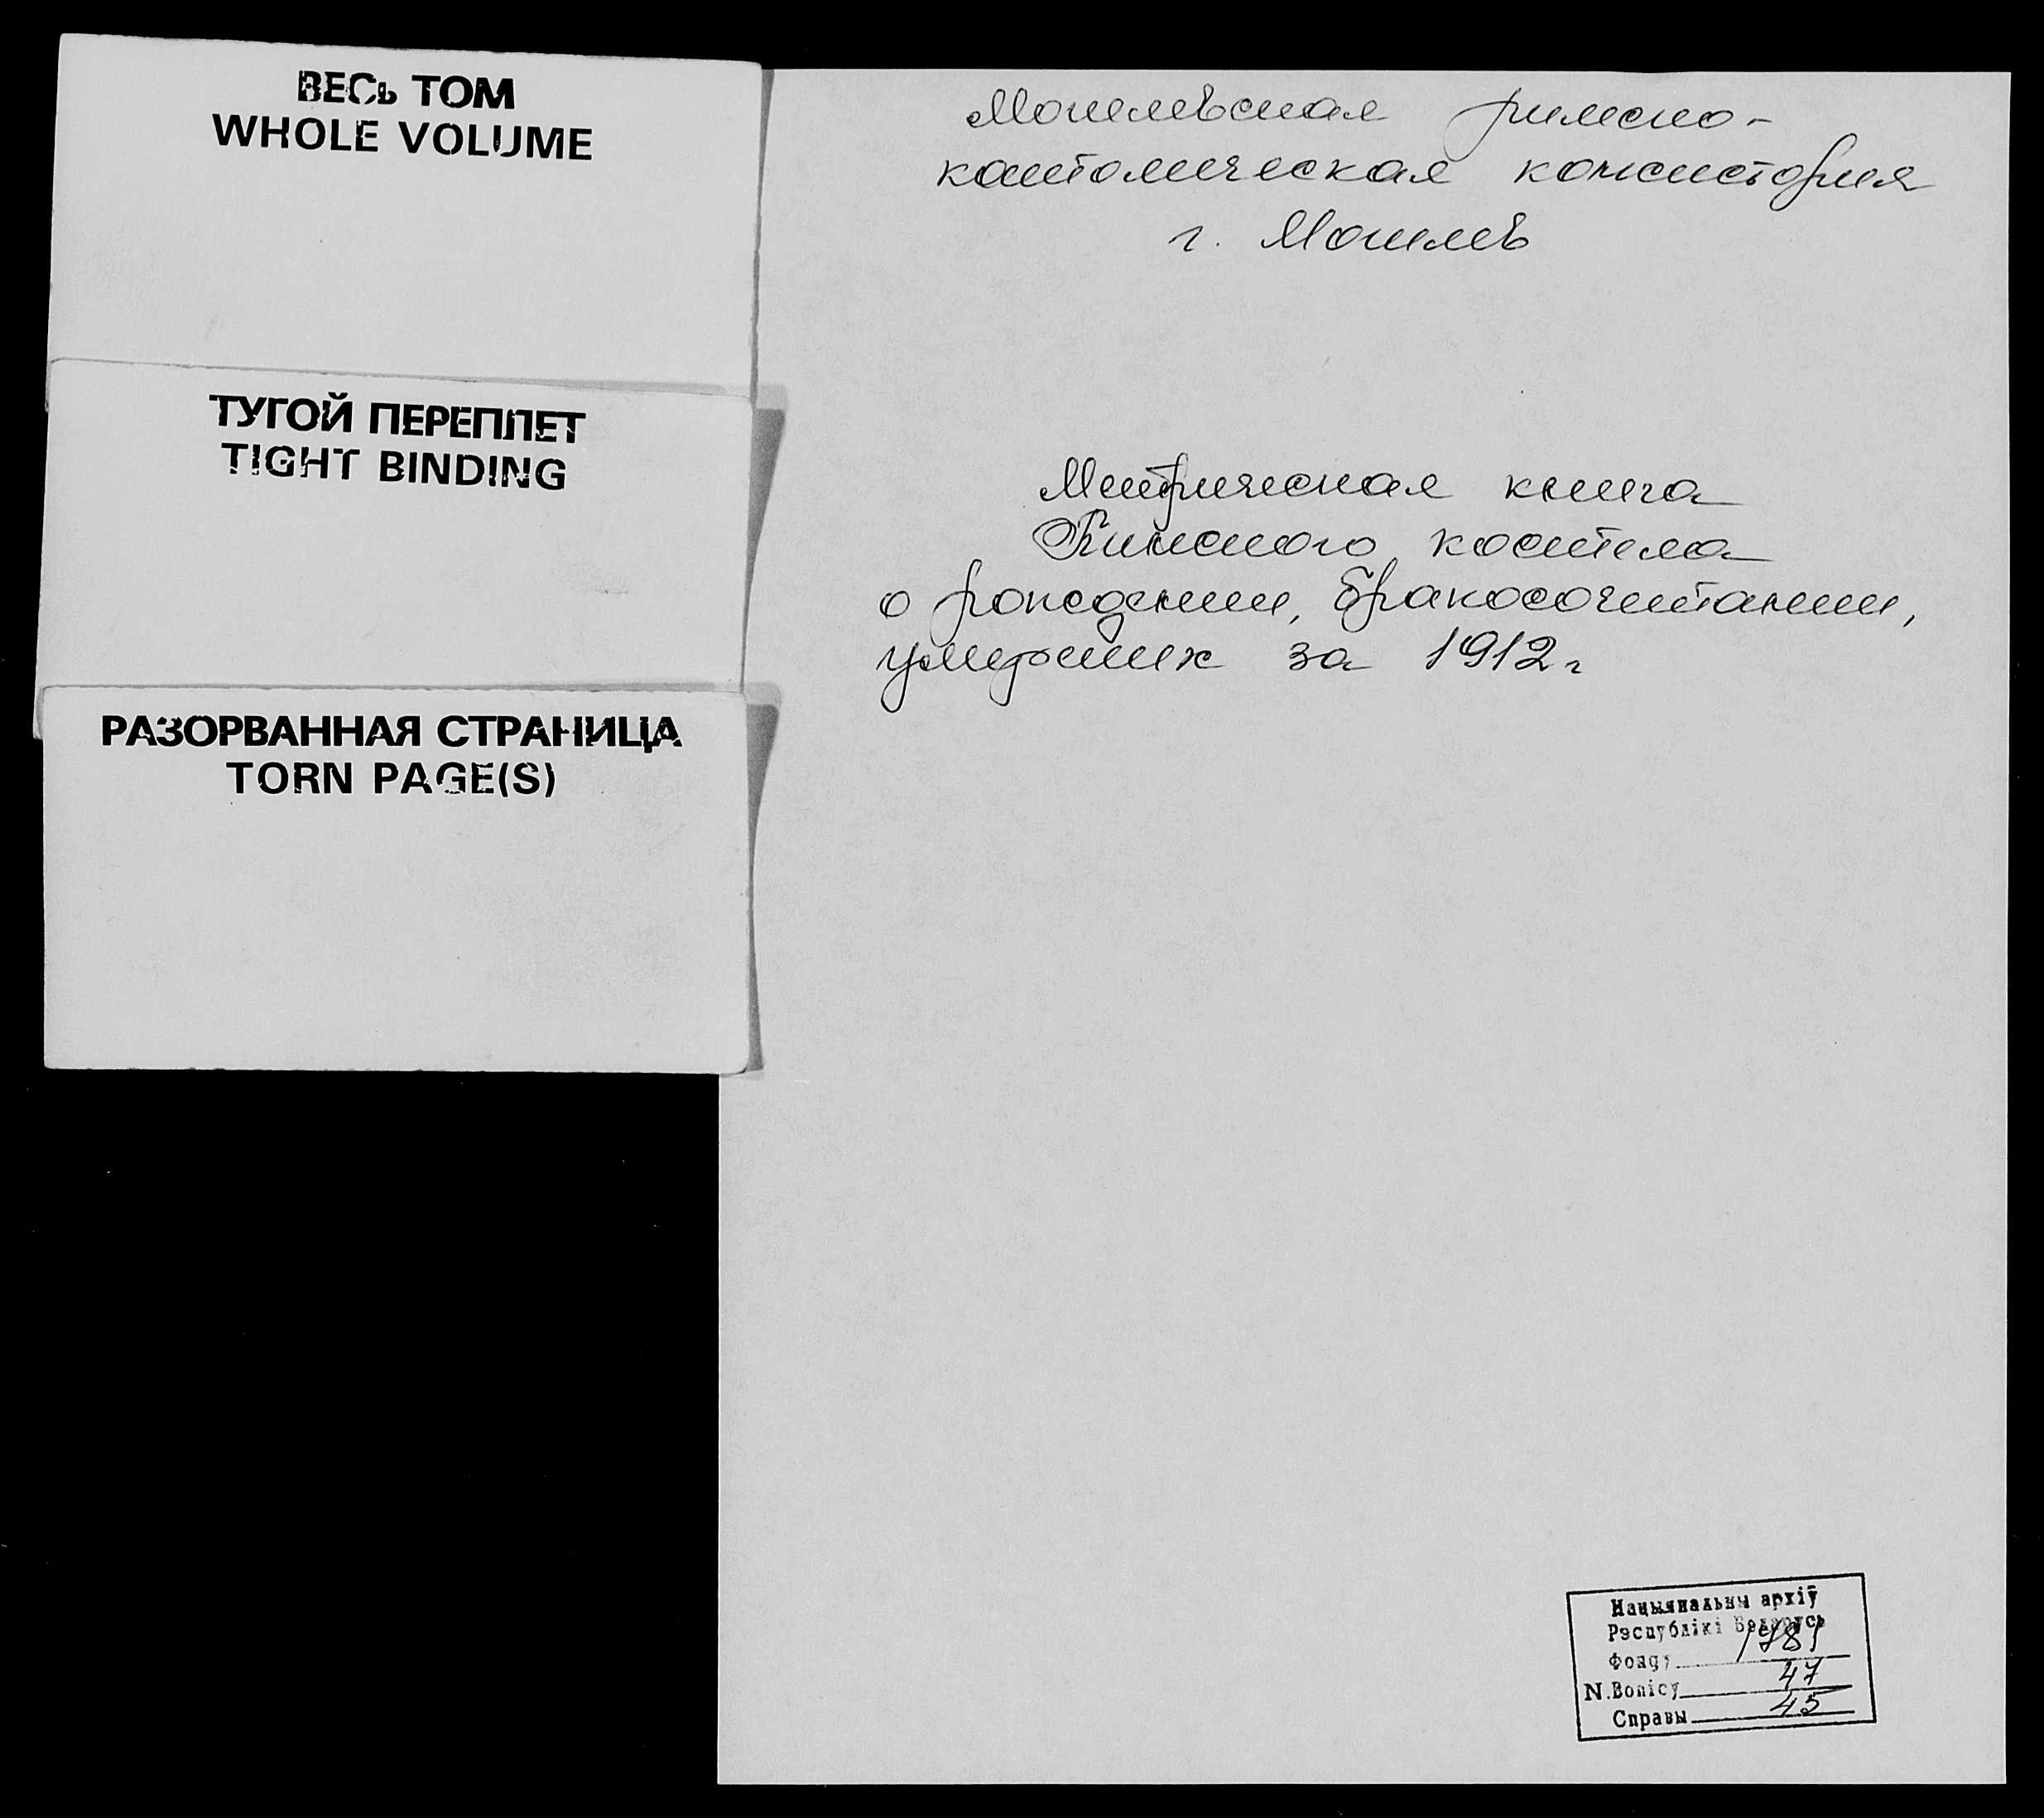 ВЕСЬ ТОМ
WHOLE VOLUME
ТУГОЙ ПЕРЕПЛЕТ
TIGHT BINDING
РАЗОРВАННАЯ СТРАНИЦА
TORN PAGE(S)
Могилевская римско-
католическая консистория
г. Могилев
Метрическая книга
костела
о рождении, бракосочетании,
умерших за 1912 г
Нацыянальны архіў
Рэспублікі Беларусь
Фонду 1781
N.Вопісу 47
Справы 45